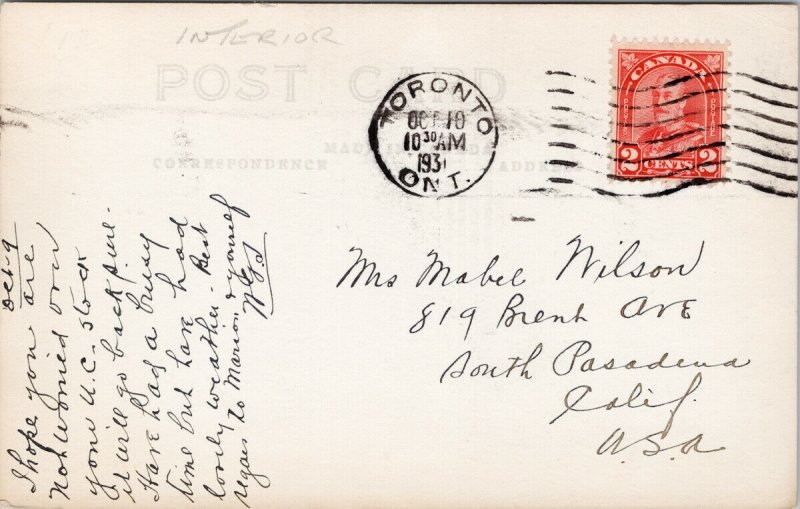 INTERIOR
POST CARD
TORONTO
OCT 10
10 30 AM
1931
ONT.
CANADA
POSTES
POSTES
2 CENTS 2
MADE IN CANADA
CORRESPONDENCE
ADDRESS
Oct-9
I hope you are
not worried over
your U.C. stock
it will go back fine.
Have had a busy
time but have had
lovely weather. Best
regars to Marion & yourself
Mrs Mabel Wilson
819 Brent Ave
South Pasadena
Calif.
U.S.A